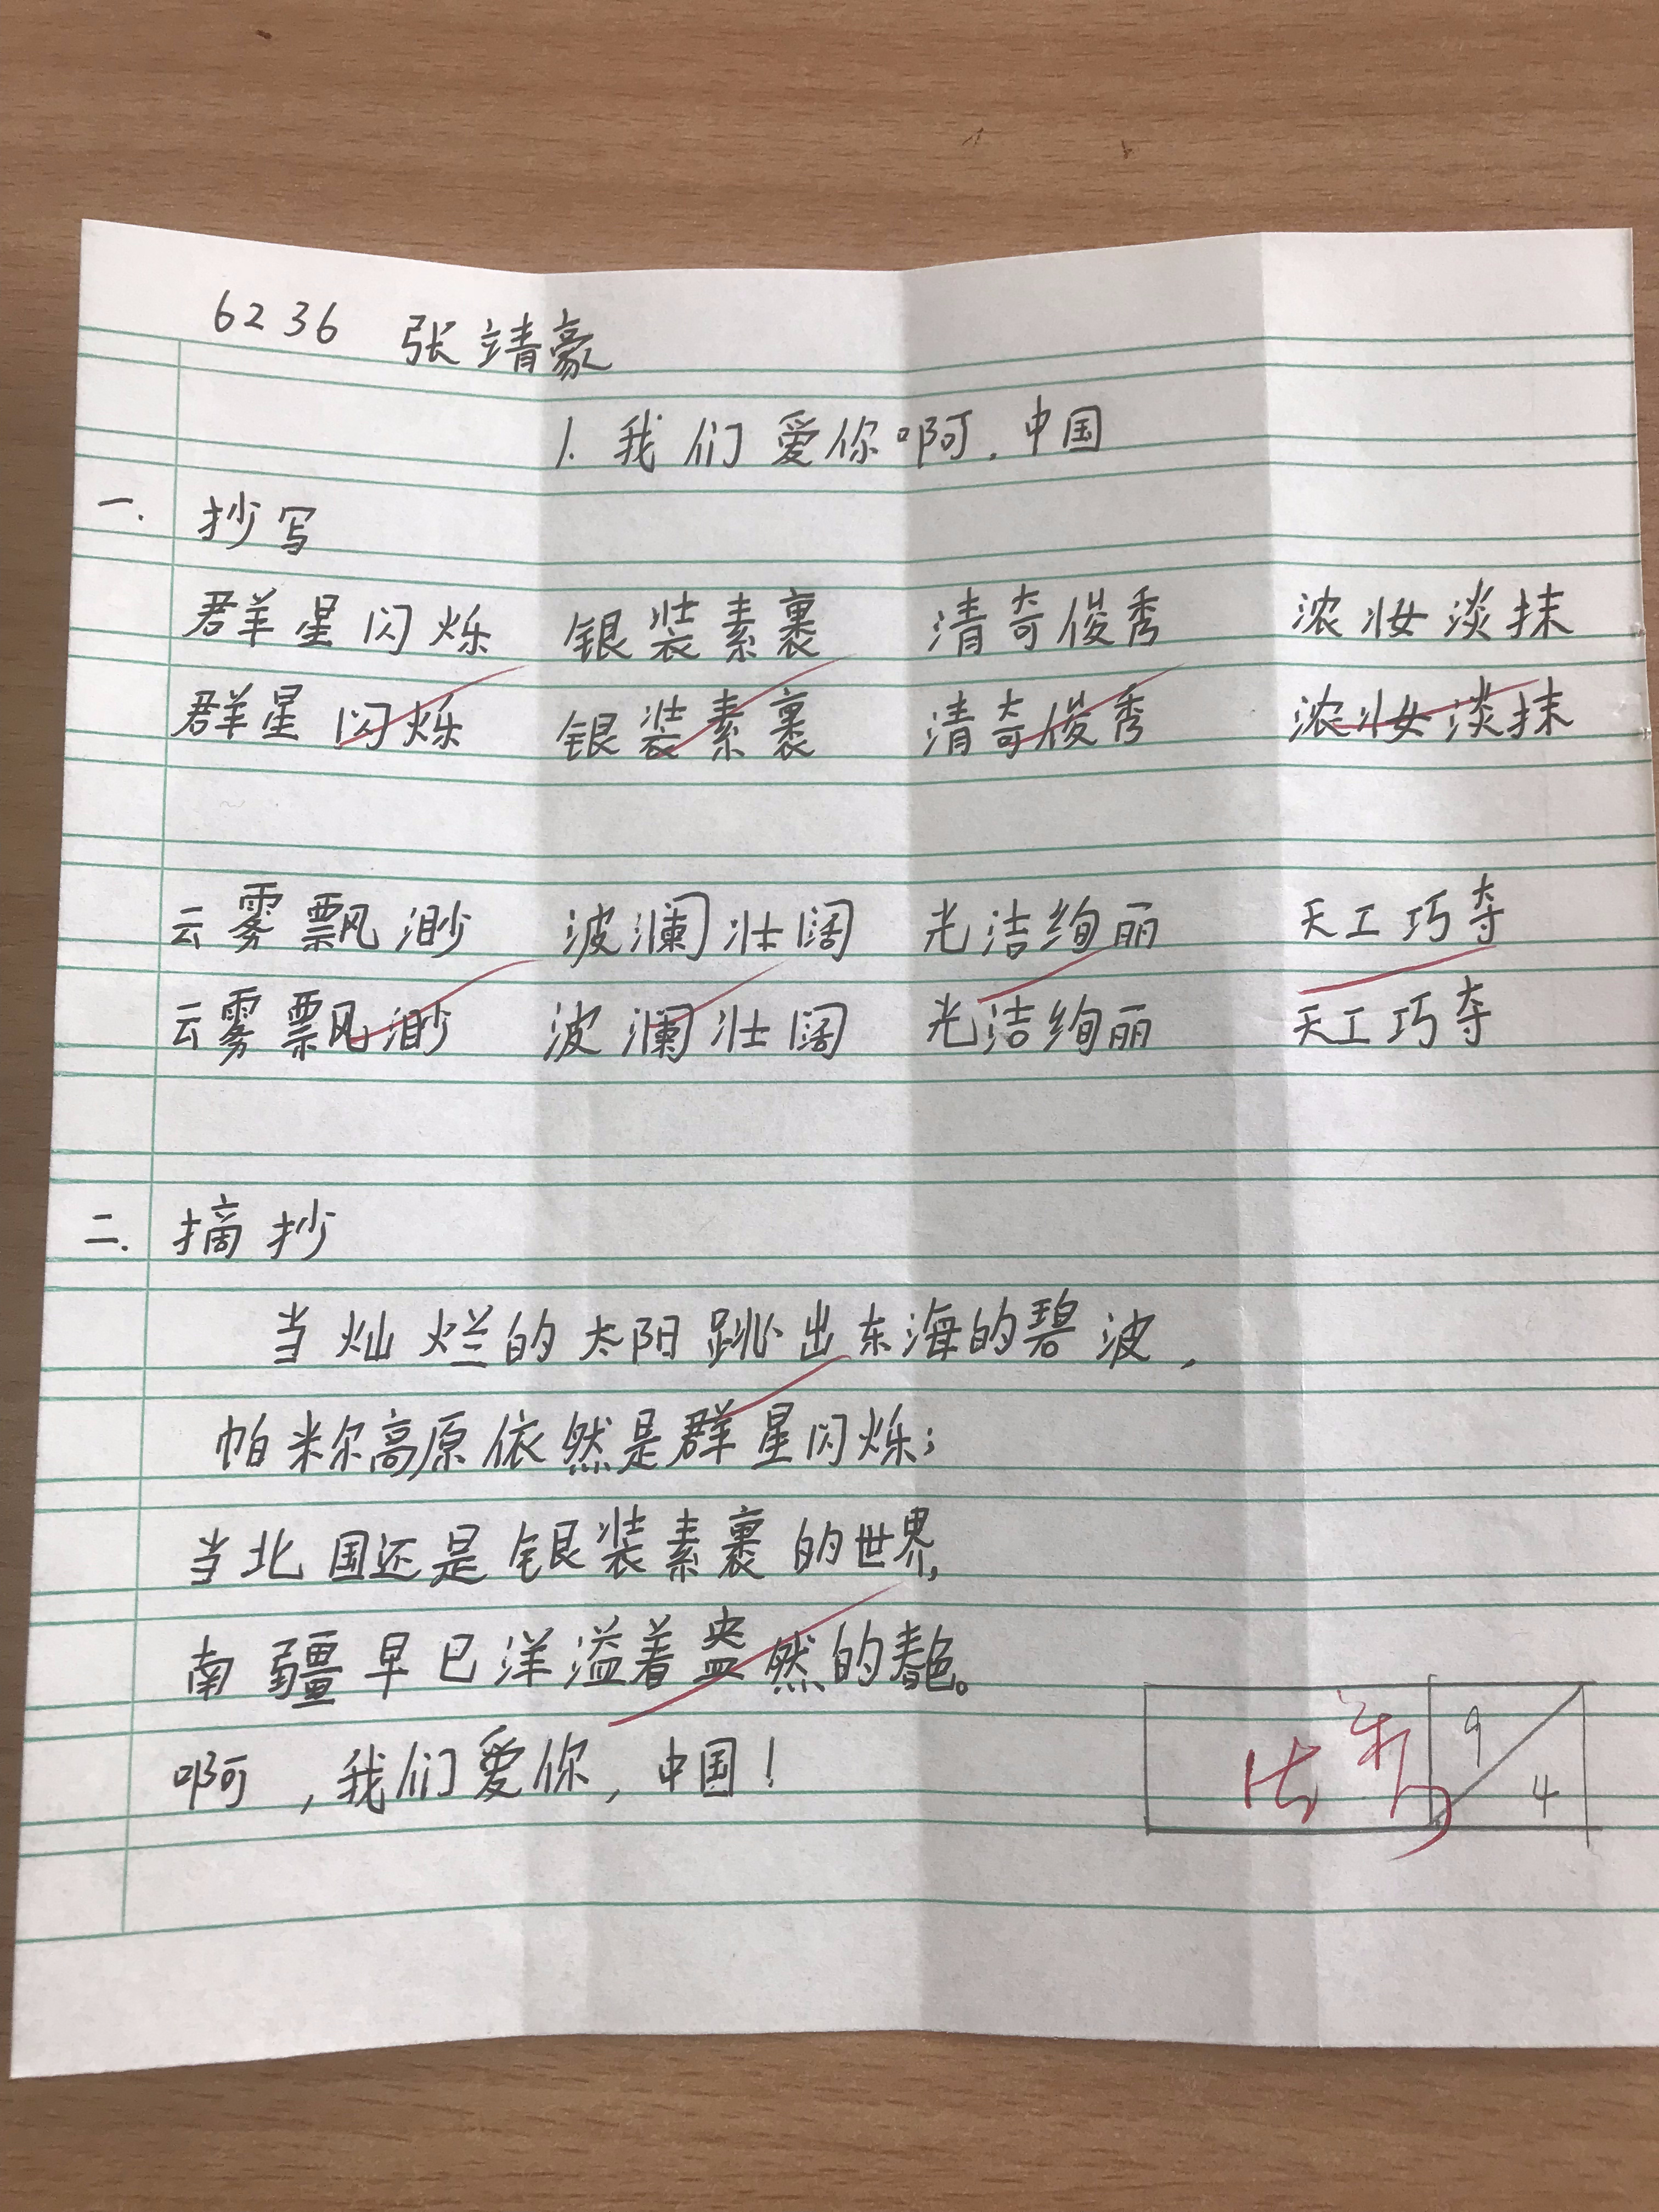 6236 张靖豪
1.我们爱你啊,中国
一.抄写
群星闪烁 银装素裹 清奇俊秀 浓妆淡抹
群星闪烁 银装素裹 清奇俊秀 浓妆淡抹
云雾飘渺 波澜壮阔 光洁绚丽 天工巧夺
云雾飘渺 波澜壮阔 光洁绚丽 天工巧夺
二.摘抄
当灿烂的太阳跳出东海的碧波,
帕米尔高原依然是群星闪烁;
当北国还是银装素裹的世界,
南疆早已洋溢着盎然的春色。
啊,我们爱你,中国!
9/4